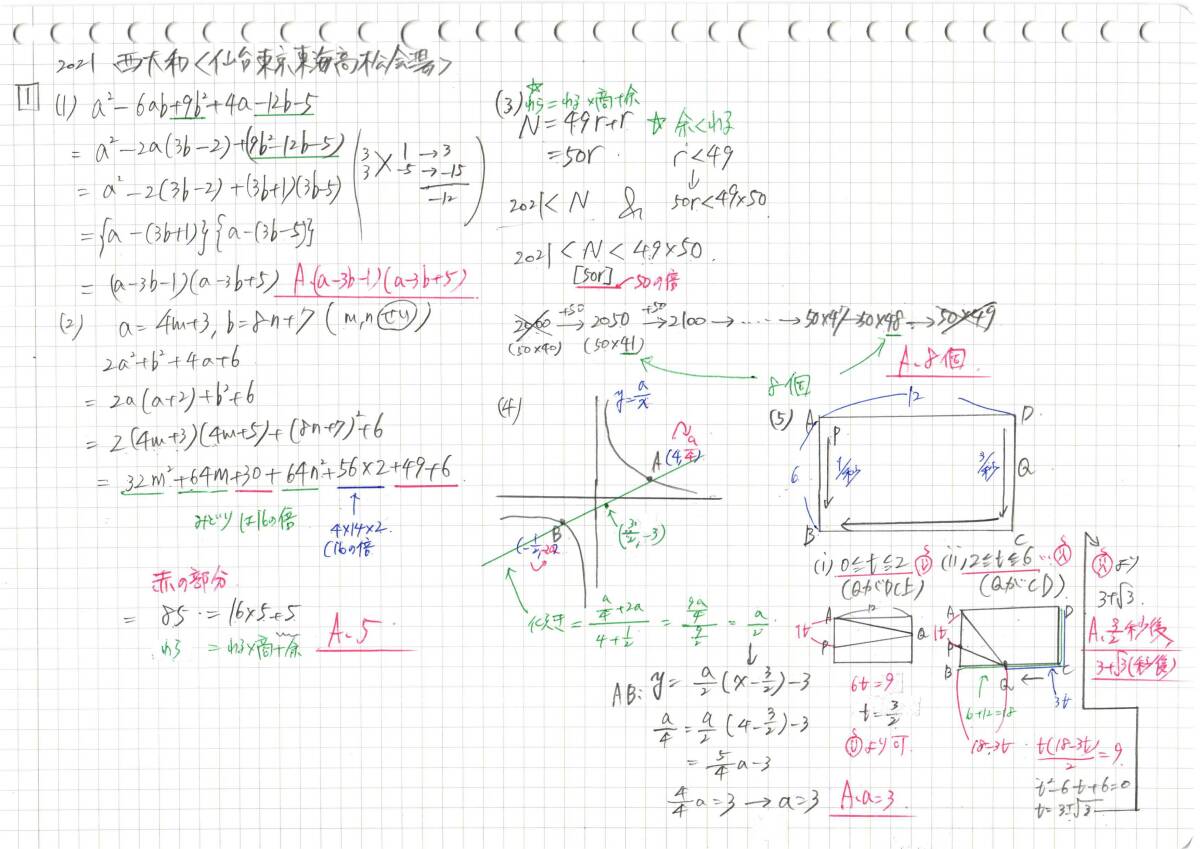 2021 西大和<仙台東京東海高松会場>
1
(1) a²-6ab+9b²+4a-12b-5
= a²-2a(3b-2)+(9b²-12b-5)
3 1 →3
3 -5 →-15
-12
= a²-2(3b-2)+(3b+1)(3b-5)
={a-(3b+1)}{a-(3b-5)}
= (a-3b-1)(a-3b+5) A.(a-3b-1)(a-3b+5)
(2) a=4m+3, b=8n+7 (m,nせい)
2a²+b²+4a+6
= 2a(a+2)+b²+6
= 2(4m+3)(4m+5)+(8n+7)²+6
= 32m²+64m+30+64n²+56×2+49+6
みどりは16の倍
4×14×2
16の倍
赤の部分
= 85 = 16×5+5
わら = わる×商+余
A.5
(3) ☆わら=わる×商+余
N=49r+r ☆余<わる
=50r. r<49
↓
2021<N & 50r<49×50
2021<N<49×50.
[50r] 50の倍
2000 +50→ 2050 +50→ 2100 → ‥‥ → 50×47→50×48 → 50×49
(50×40) (50×41)
8個
A.8個
(4) y=a/x
(4, a/4)
A
B
(-1/2, -2a)
(3/2, -3)
傾き = (a/4+2a)/(4+1/2) = (9a/4)/(9/2) = a/2
↓
AB: y= a/2(x-3/2)-3
a/4 = a/2(4-3/2)-3
= 5/4a-3
4/4a=3 → a=3 A.a=3
(5) 12
A D
P
6 1/秒 3/秒 Q
B C
(i) 0≤t≤2
(QがDC上)
A 12
1t Q
P
6t=9
t=3/2
より可
(ii) 2≤t≤6
(QがCD)
A D
1t
P
B Q C
6+12=18 3t
18-3t
t(18-3t)/2=9
t²-6t+6=0
t=3±√3
より
3+√3
A.3/2秒後
3+√3(秒後)